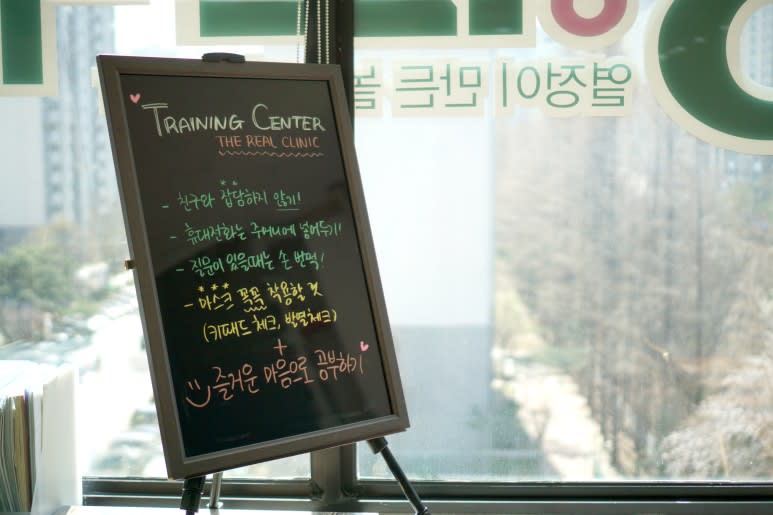 열정이 만든
TRAINING CENTER
THE REAL CLINIC
- 친구와 잡담하지 않기!
- 휴대전화는 주머니에 넣어두기!
- 질문이 있을때는 손 번쩍!
- 마스크 꼭꼭 착용할 것
(키패드 체크, 발열체크)
+
즐거운 마음으로 공부하기